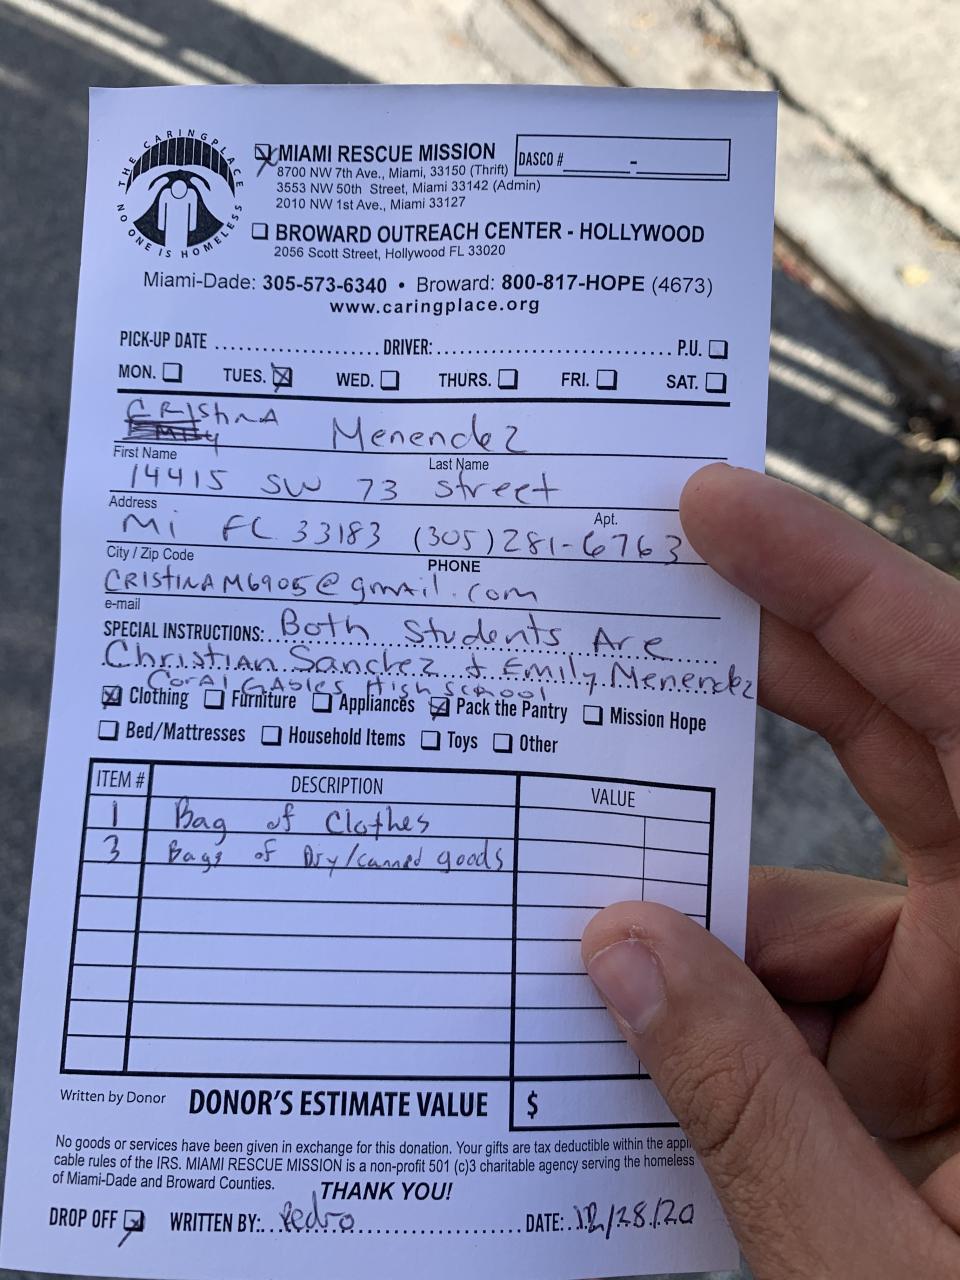 THE CARING PLACE
NO ONE IS HOMELESS
MIAMI RESCUE MISSION
8700 NW 7th Ave., Miami, 33150 (Thrift)
3553 NW 50th Street, Miami 33142 (Admin)
2010 NW 1st Ave., Miami 33127
DASCO # -
BROWARD OUTREACH CENTER - HOLLYWOOD
2056 Scott Street, Hollywood FL 33020
Miami-Dade: 305-573-6340 • Broward: 800-817-HOPE (4673)
www.caringplace.org
PICK-UP DATE DRIVER: P.U.
MON. TUES. WED. THURS. FRI. SAT.
CRIStinA Menendez
First Name Last Name
14415 SW 73 Street
Address Apt.
Mi FL 33183 (305)281-6763
City / Zip Code PHONE
CRIStinAM6905@gmail.com
e-mail
SPECIAL INSTRUCTIONS: Both Students Are
Christian Sanchez & Emily Menendez
Coral Gables High School
Clothing Furniture Appliances Pack the Pantry Mission Hope
Bed/Mattresses Household Items Toys Other
ITEM # DESCRIPTION VALUE
1 Bag of Clothes
3 Bags of Dry/canned goods
Written by Donor DONOR'S ESTIMATE VALUE $
No goods or services have been given in exchange for this donation. Your gifts are tax deductible within the appli
cable rules of the IRS. MIAMI RESCUE MISSION is a non-profit 501 (c)3 charitable agency serving the homeless
of Miami-Dade and Broward Counties. THANK YOU!
DROP OFF WRITTEN BY: Pedro DATE: 12/28/20